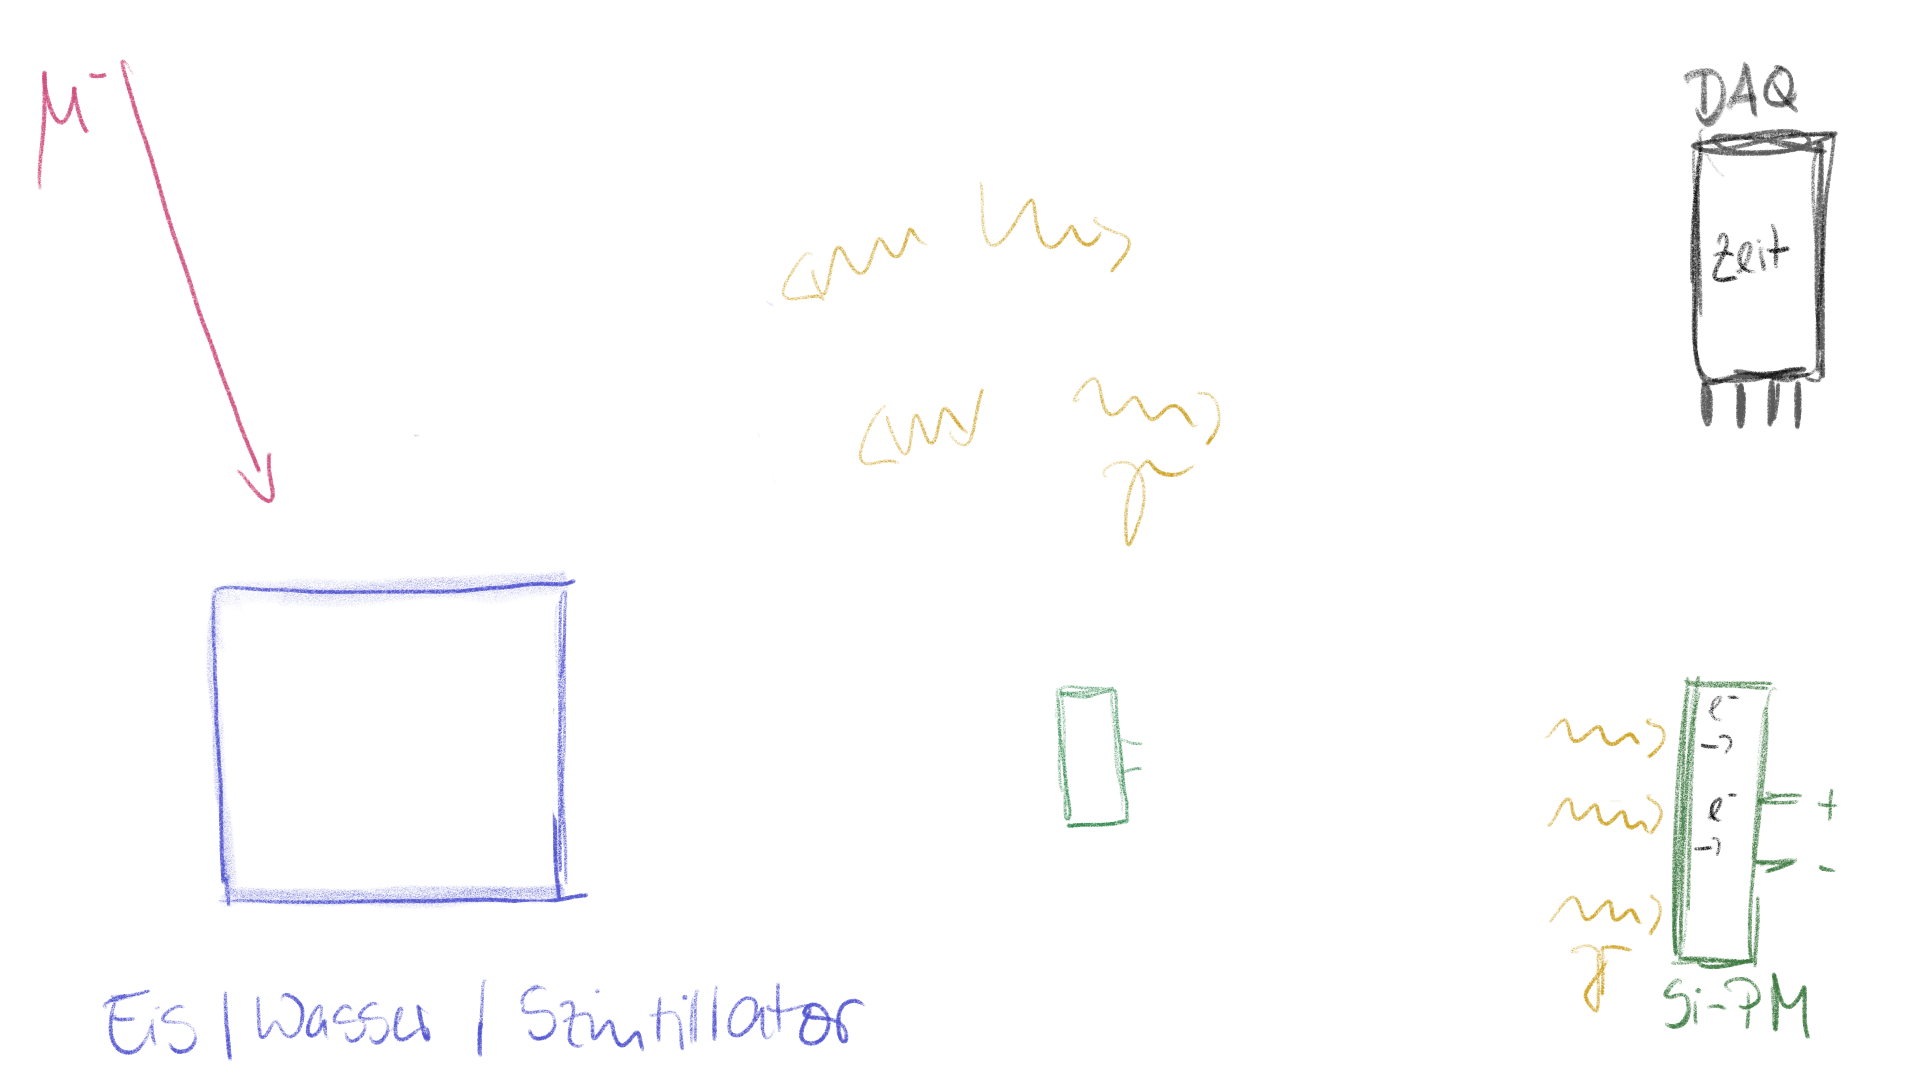 μ⁻
DAQ
Zeit
γ
e⁻
→
e⁻
→
+
-
γ
Si-PM
Eis / Wasser / Szintillator